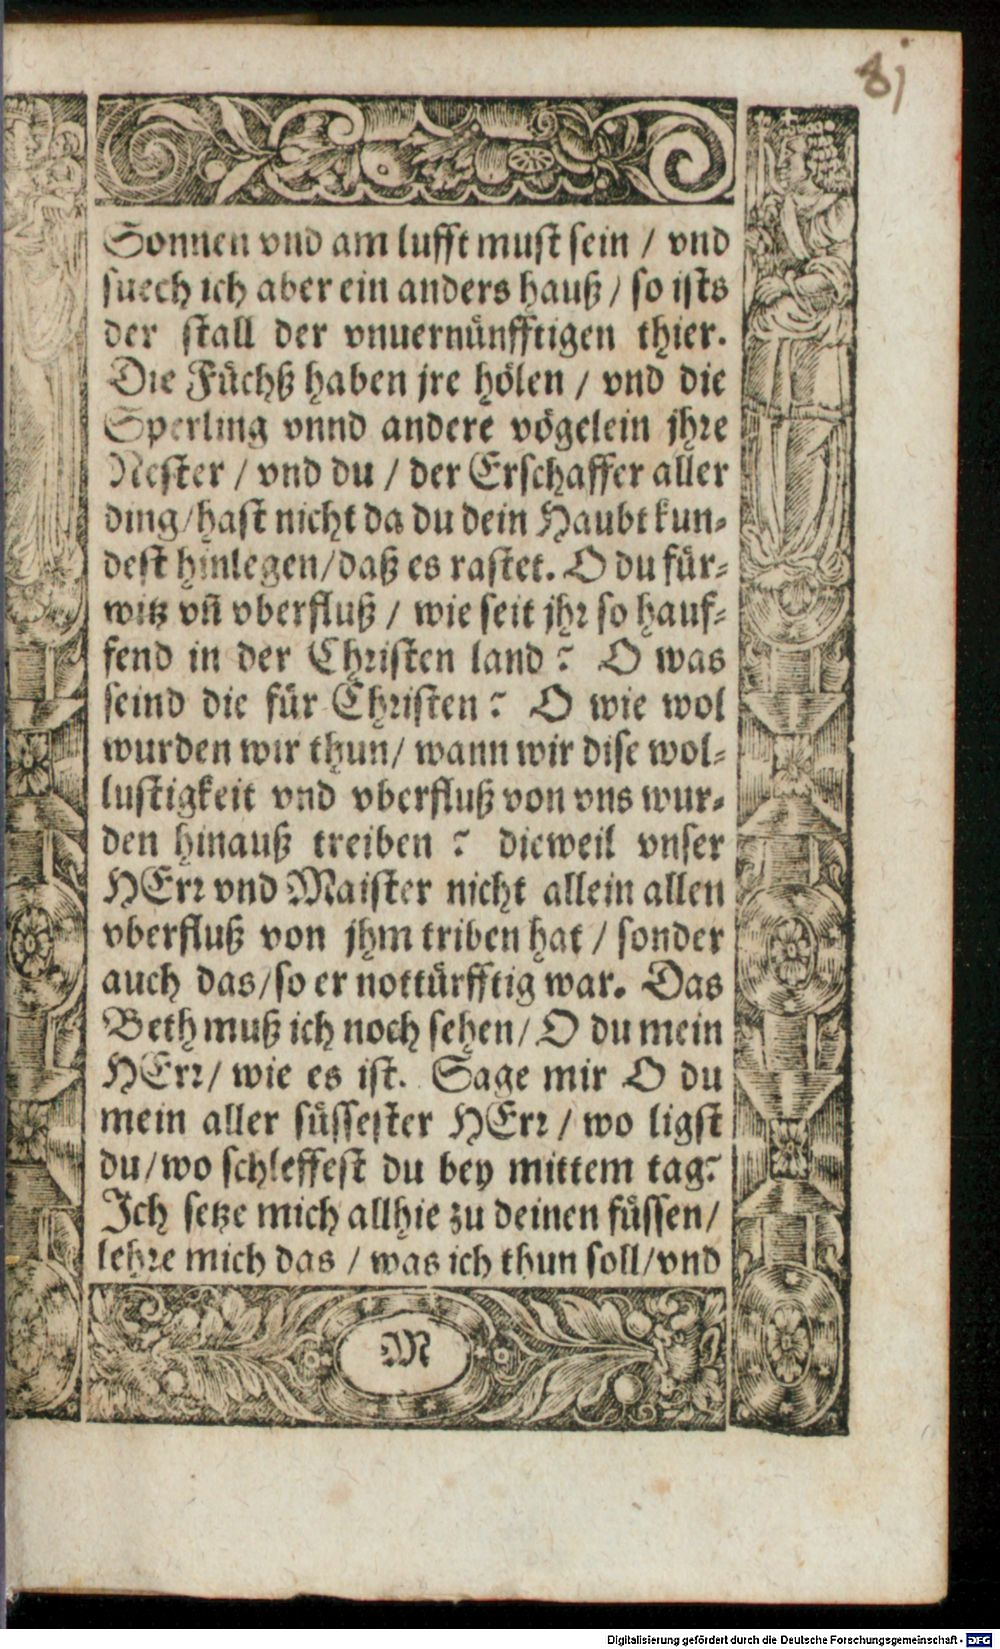 8j
Sonnen vnd am lufft must sein / vnd
suech ich aber ein anders hauß / so ists
der stall der vnuernünfftigen thier.
Die Füchß haben jre hölen / vnd die
Sperling vnnd andere vögelein jhre
Nester / vnd du / der Erschaffer aller
ding/hast nicht da du dein Haubt kun-
dest hinlegen/daß es rastet. O du für-
witz vñ vberfluß / wie seit jhr so hauf-
fend in der Christen land? O was
seind die für Christen? O wie wol
wurden wir thun/ wann wir dise wol-
lustigkeit vnd vberfluß von vns wur-
den hinauß treiben ? dieweil vnser
HErr vnd Maister nicht allein allen
vberfluß von jhm triben hat / sonder
auch das/so er nottürfftig war. Das
Beth muß ich noch sehen/ O du mein
HErr/ wie es ist. Sage mir O du
mein aller süssester HErr / wo ligst
du/wo schleffest du bey mittem tag?
Ich setze mich allhie zu deinen füssen/
lehre mich das / was ich thun soll/vnd
M
Digitalisierung gefördert durch die Deutsche Forschungsgemeinschaft - DFG